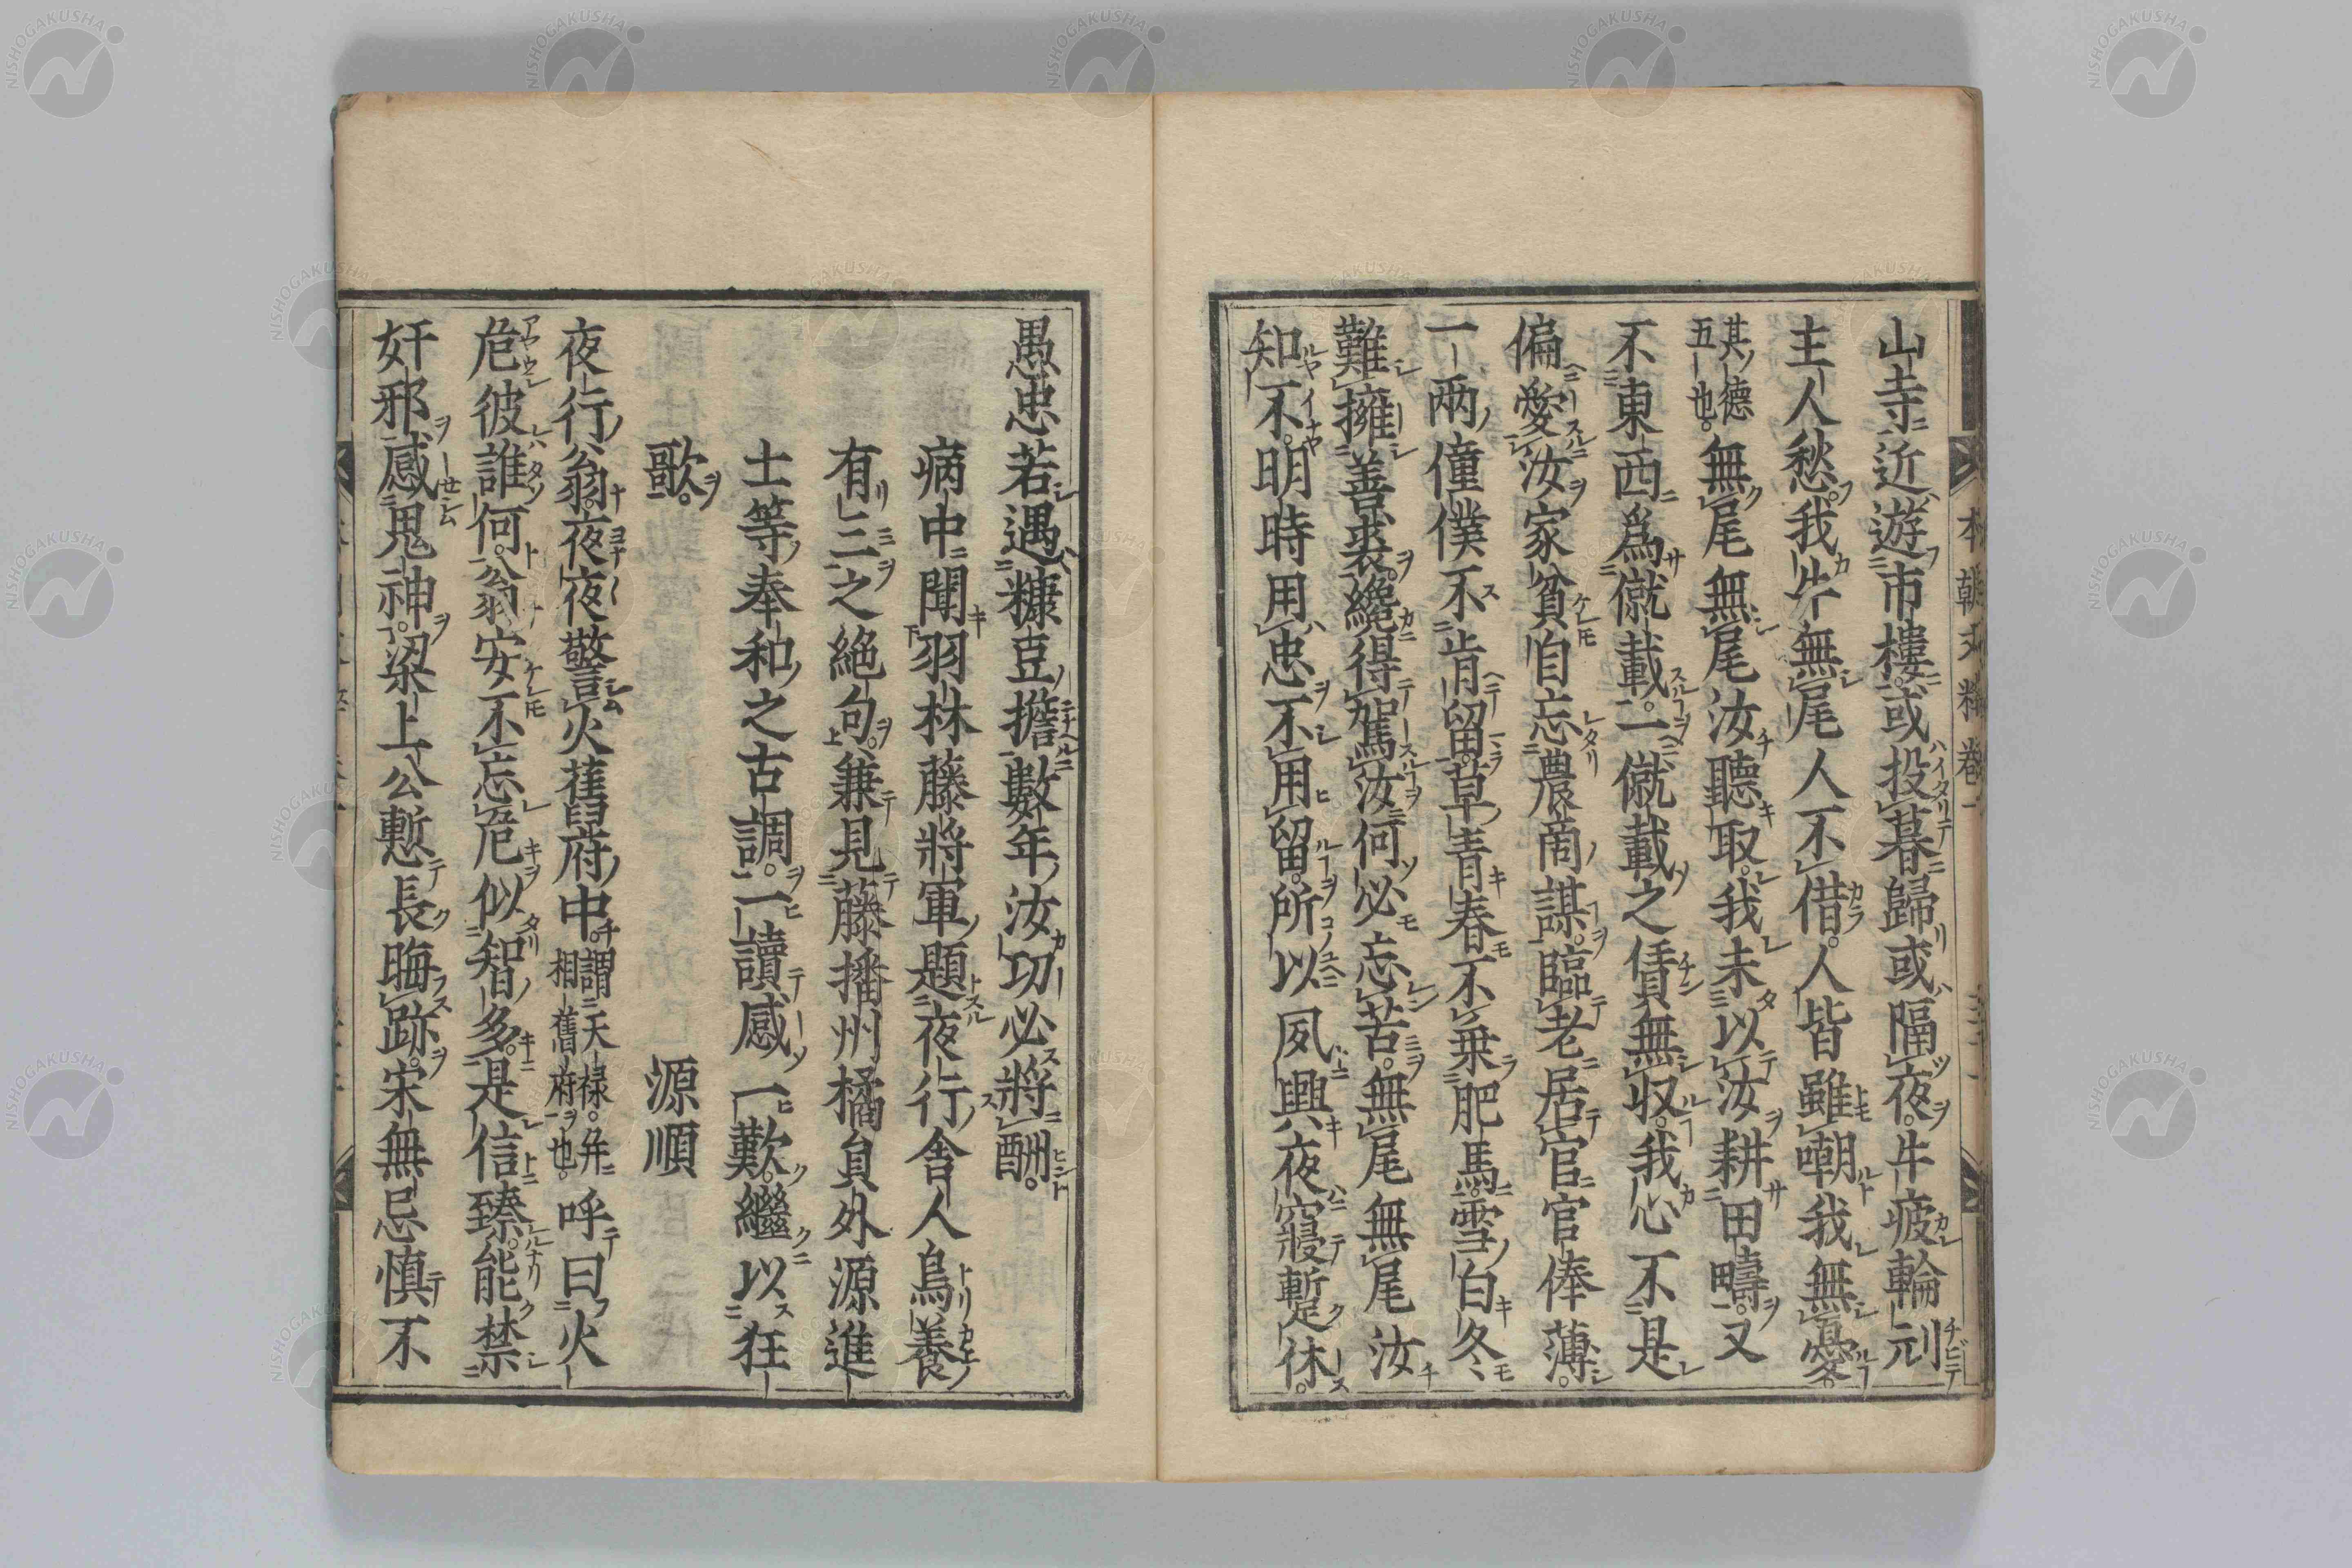 山寺近遊市樓或投暮歸或隔夜牛疲輪刓
主人愁我牛無尾人不借人皆雖嘲我無憂
其德五也無尾無尾汝聽取我未以汝耕田疇又
不東西爲僦載一僦載之賃無収我心不是
偏愛汝家貧自忘農商謀臨老居官官俸薄
一兩僮僕不肯留草青春不乗肥馬雪白冬
難擁善裘纔得駕汝何必忘苦無尾無尾汝
知不明時用忠不用留所以夙興夜寢暫休
愚忠若遇糠豆擔數年汝功必將酬
病中聞羽林藤將軍題夜行舎人鳥養
有三之絶句兼見藤播州橘員外源進
士等奉和之古調一讀感一歎繼以狂
歌 源順
夜行翁夜夜警火舊府中謂天祿年相舊府也呼曰火
危彼誰何公翁安不忘危似智多是信臻能禁
奸邪感鬼神梁上公慙長晦跡宋無忌慎不
本朝文粹卷一
NISHOGAKUSHA